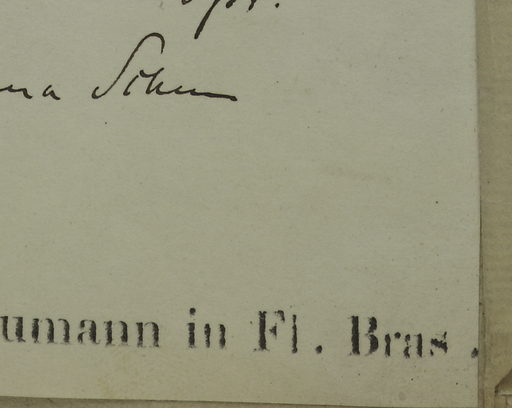 Schum
umann in Fl. Bras.